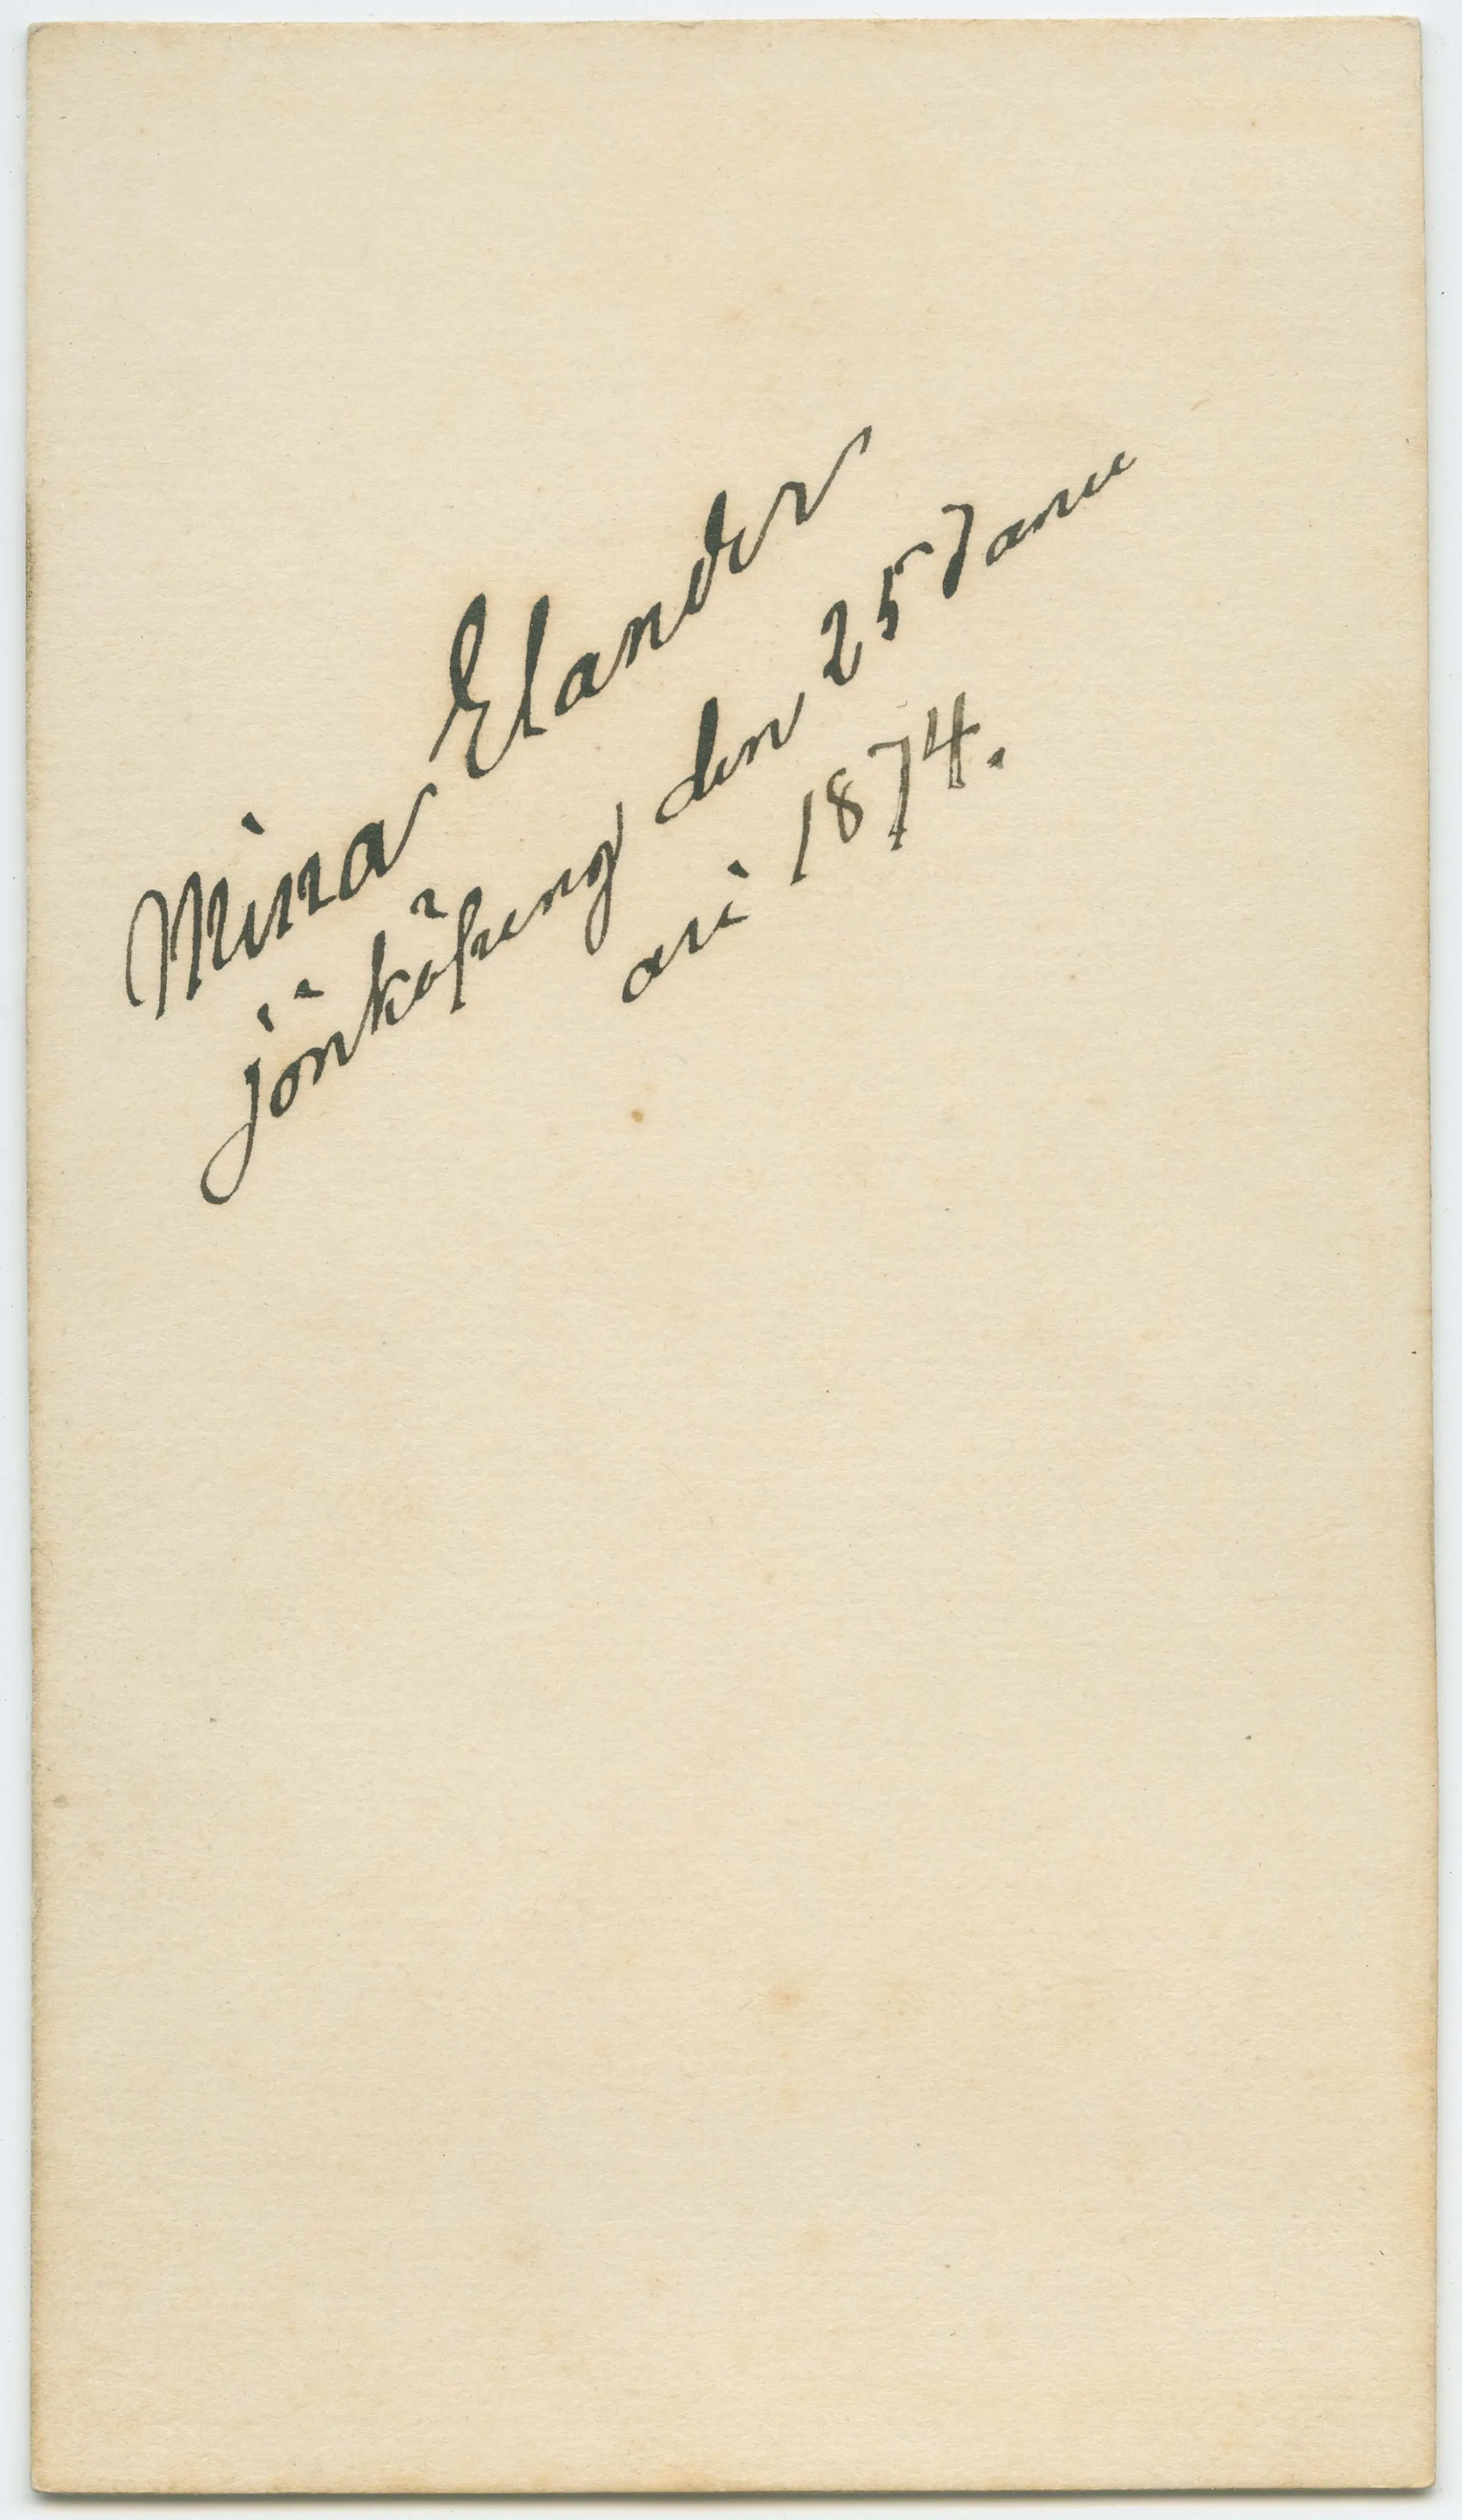 Mina Elander
jönköping den 25 Janu
ari 1874.